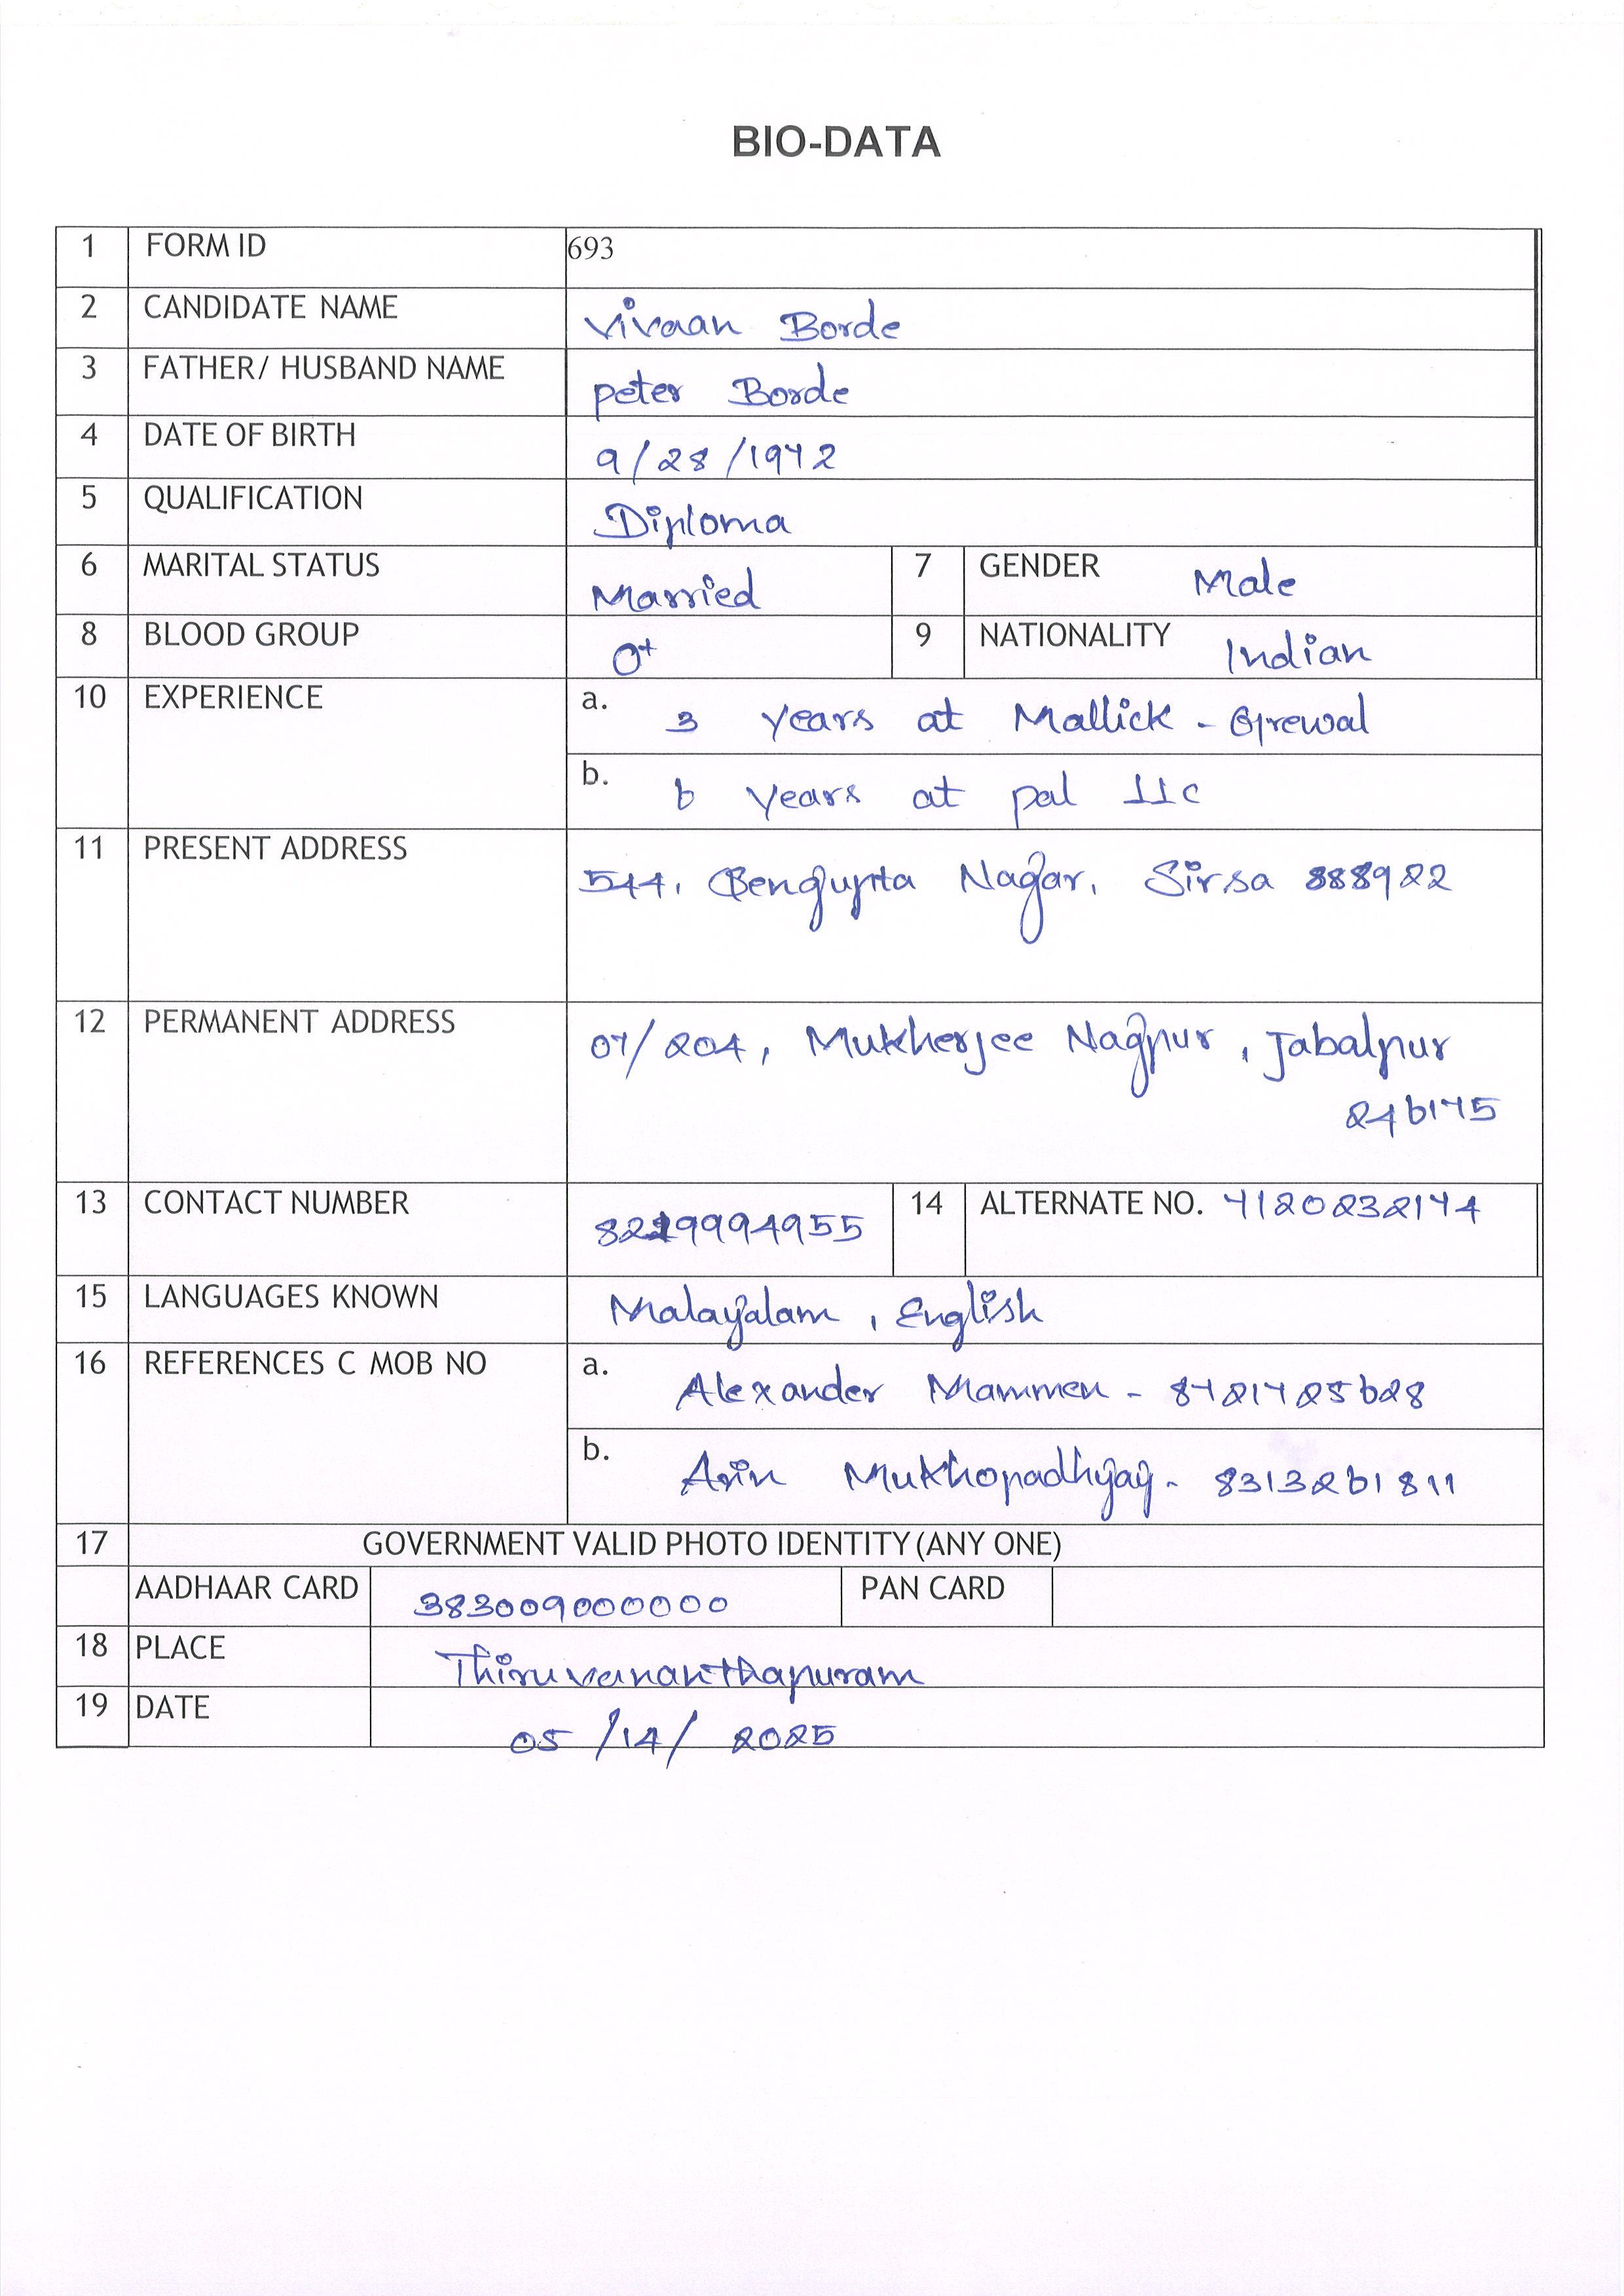 BIO-DATA
1 FORM ID 693
2 CANDIDATE NAME Vivaan Borde
3 FATHER/ HUSBAND NAME peter Borde
4 DATE OF BIRTH 9/28/1972
5 QUALIFICATION Diploma
6 MARITAL STATUS Married 7 GENDER Male
8 BLOOD GROUP O+ 9 NATIONALITY Indian
10 EXPERIENCE a. 3 years at Mallick - Grewal
b. 6 years at pal LLC
11 PRESENT ADDRESS 544, Sengupta Nagar, Sirsa 888922
12 PERMANENT ADDRESS 07/204, Mukherjee Nagpur, Jabalpur
246175
13 CONTACT NUMBER 8219994955 14 ALTERNATE NO. 7120232174
15 LANGUAGES KNOWN Malayalam, English
16 REFERENCES C MOB NO a. Alexander Mammen - 8721725628
b. Arin Mukhopadhyay - 8313261811
17 GOVERNMENT VALID PHOTO IDENTITY (ANY ONE)
AADHAAR CARD 383009000000 PAN CARD
18 PLACE Thiruvananthapuram
19 DATE 05/14/2025